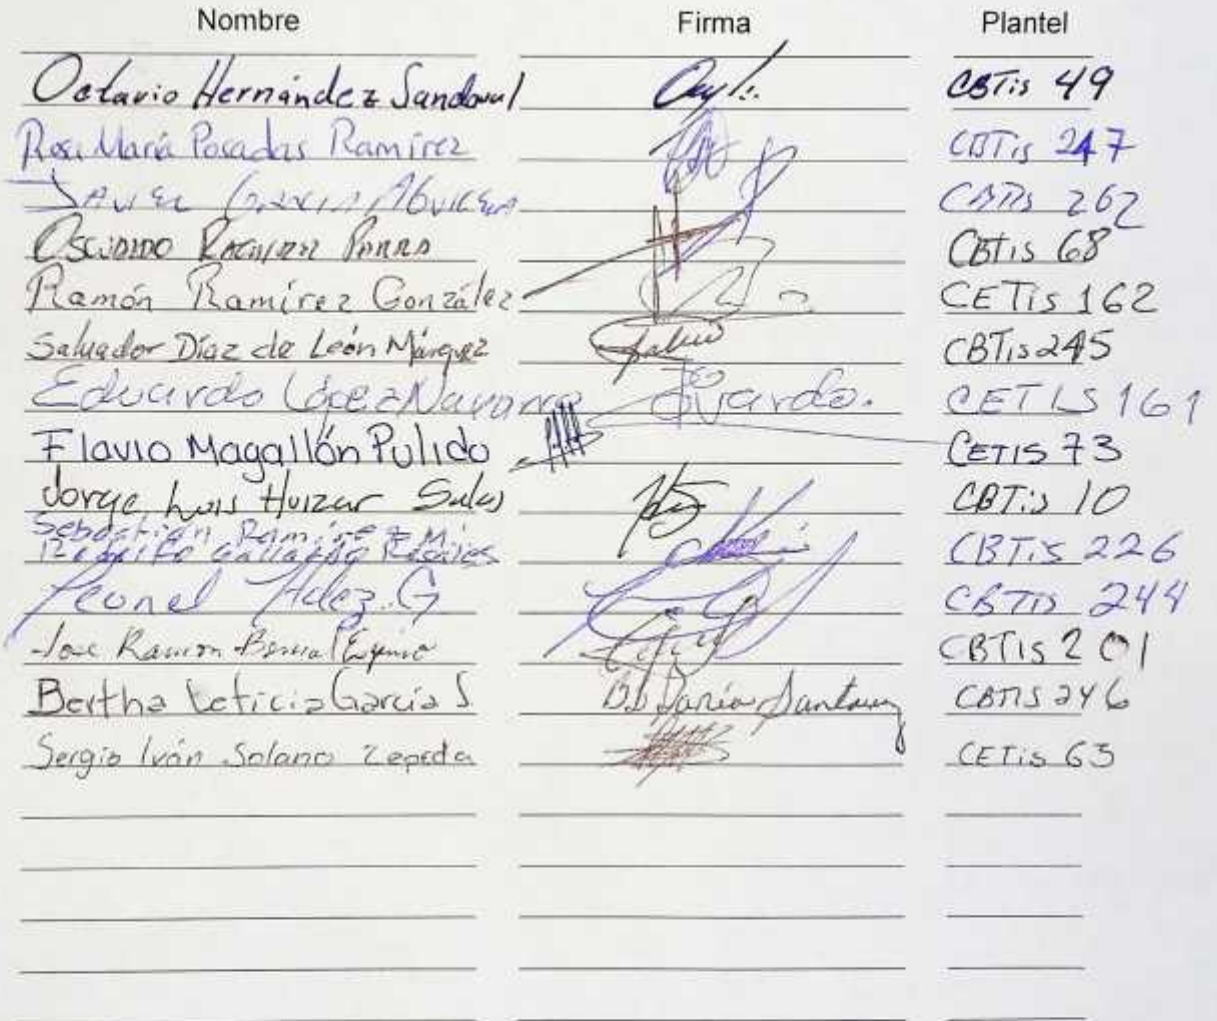 Nombre Firma Plantel
Octavio Hernández Sandoval CBTis 49
Rosa María Posadas Ramírez CBTis 247
Javier García CBTis 262
Ramírez CBTis 68
Ramón Ramírez González CETis 162
Salvador Díaz de León Márquez CBTis 245
Eduardo López Navarro CETIS 161
Flavio Magallón Pulido CETIS 73
Jorge Luis Huizar Salas CBTis 10
Sebastián Ramírez M.
CBTis 226
Leonel Hdez. G CBTis 244
Jose Ramon Bernal CBTis 201
Bertha Leticia García S CBTIS 246
Sergio Iván Solano Zepeda CETis 63